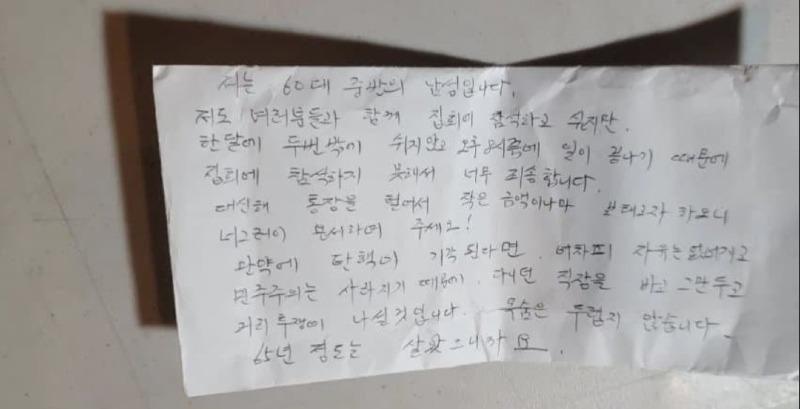 저는 60대 중반의 남성입니다.
저도 여러분들과 함께 집회에 참석하고 싶지만.
한달에 두번밖에 쉬지않고 오후8시쯤에 일이 끝나기 때문에
집회에 참석하지 못해서 너무 죄송합니다.
대신해 통장을 헐어서 작은 금액이나마 보태고자 하오니
너그러이 용서하여 주세요!
만약에 탄핵이 기각된다면. 어차피 자유는 없어지고
민주주의는 사라지기 때문에. 다니던 직장을 바로 그만두고
거리투쟁에 나설것입니다. 목숨은 두렵지 않습니다
65년 정도는 살았으니까요.